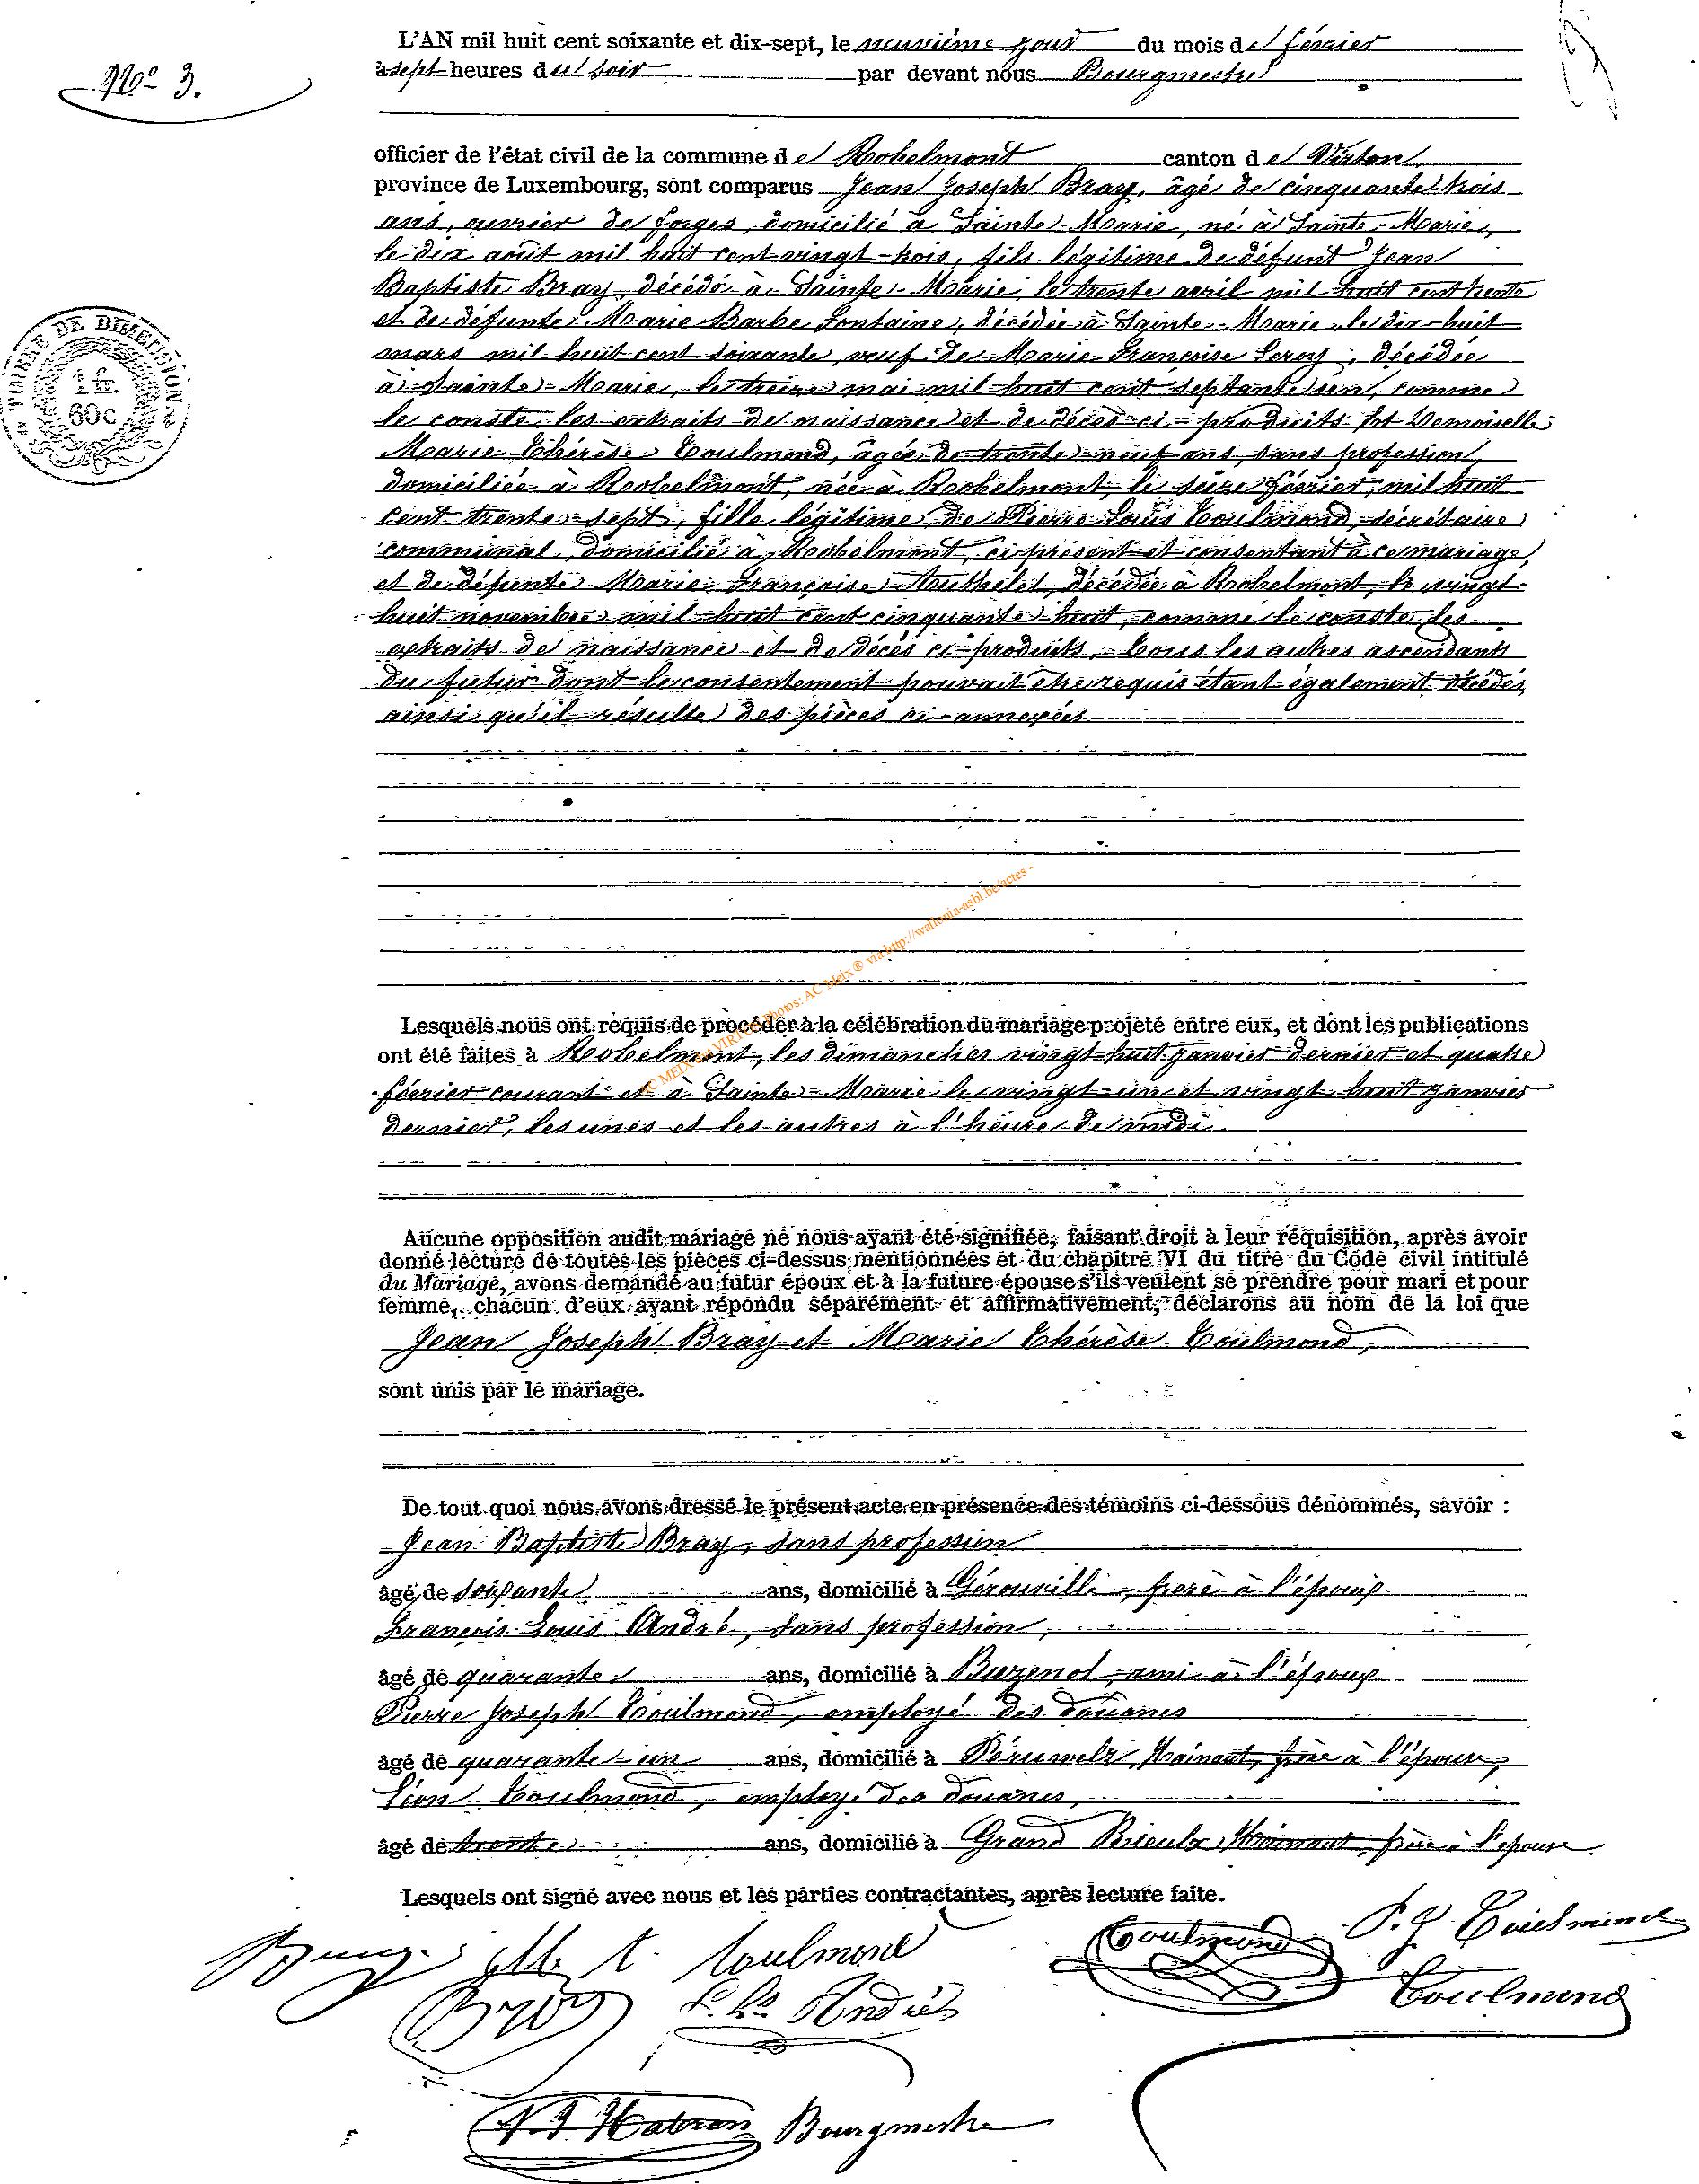 L'AN mil huit cent soixante et dix-sept, le neuvième jour du mois de février
N° 3.
à sept heures du soir par devant nous Bourgmestre
officier de l'état civil de la commune de Robelmont canton de Virton
province de Luxembourg, sont comparus Jean Joseph Bray, âgé de cinquante-trois
ans, ouvrier de forges, domicilié à Sainte-Marie, né à Sainte-Marie,
le dix août mil huit cent vingt-trois, fils légitime de défunt Jean
Baptiste Bray, décédé à Sainte-Marie, le trente avril mil huit cent trente
et de défunte Marie Barbe Fontaine, décédée à Sainte-Marie le dix-huit
mars mil huit cent soixante, veuf de Marie Françoise Leroy, décédée
à Sainte-Marie, le treize mai mil huit cent septante un, comme
le conste les extraits de naissance et de décès ci-produits Et Demoiselle
Marie Thérèse Toulmond, âgée de trente-neuf ans, sans profession,
domiciliée à Robelmont, née à Robelmont, le seize février, mil huit
cent trente-sept, fille légitime de Pierre Louis Toulmond, sécrétaire
communal, domicilié à Robelmont, ci-présent et consentant à ce mariage,
et de défunte Marie Françoise Authelet, décédée à Robelmont, le vingt-
huit novembre mil huit cent cinquante-huit, comme le conste les
extraits de naissance et de décès ci-produits, tous les autres ascendants
du futur dont le consentement pouvait être requis étant également décédés
ainsi qu'il résulte des pièces ci-annexées
TIMBRE DE DIMENSION
1 fr.
60 c
Lesquels nous ont requis de procéder à la célébration du mariage projeté entre eux, et dont les publications
ont été faites à Robelmont, les dimanches vingt-huit janvier dernier et quatre
février courant et à Sainte-Marie le vingt-un et vingt huit janvier
dernier, les unes et les autres à l'heure de midi.
Aucune opposition audit mariage ne nous ayant été signifiée, faisant droit à leur réquisition, après avoir
donné lecture de toutes les pièces ci-dessus mentionnées et du chapitre VI du titre du Code civil intitulé
du Mariage, avons demandé au futur époux et à la future épouse s'ils veulent se prendre pour mari et pour
femme, chacun d'eux ayant répondu séparément et affirmativement, déclarons au nom de la loi que
Jean Joseph Bray et Marie Thérèse Toulmond,
sont unis par le mariage.
De tout quoi nous avons dressé le présent acte en présence des témoins ci-dessous dénommés, savoir :
Jean Baptiste Bray, sans profession
âgé de soixante ans, domicilié à Gérouville, frère à l'époux
François Louis André, sans profession,
âgé de quarante ans, domicilié à Buzenol, ami à l'époux
Pierre Joseph Toulmond, employé des douanes
âgé de quarante-un ans, domicilié à Péruwelz, Hainaut, frère à l'épouse,
Léon Toulmond, employé des douanes,
âgé de trente ans, domicilié à Grand Rieulx, Hainaut, frère à l'épouse.
Lesquels ont signé avec nous et les parties contractantes, après lecture faite.
Bray M. t. toulmond Toulmond P. J. Toulmond
Bray André Toulmond
Bourgmestre